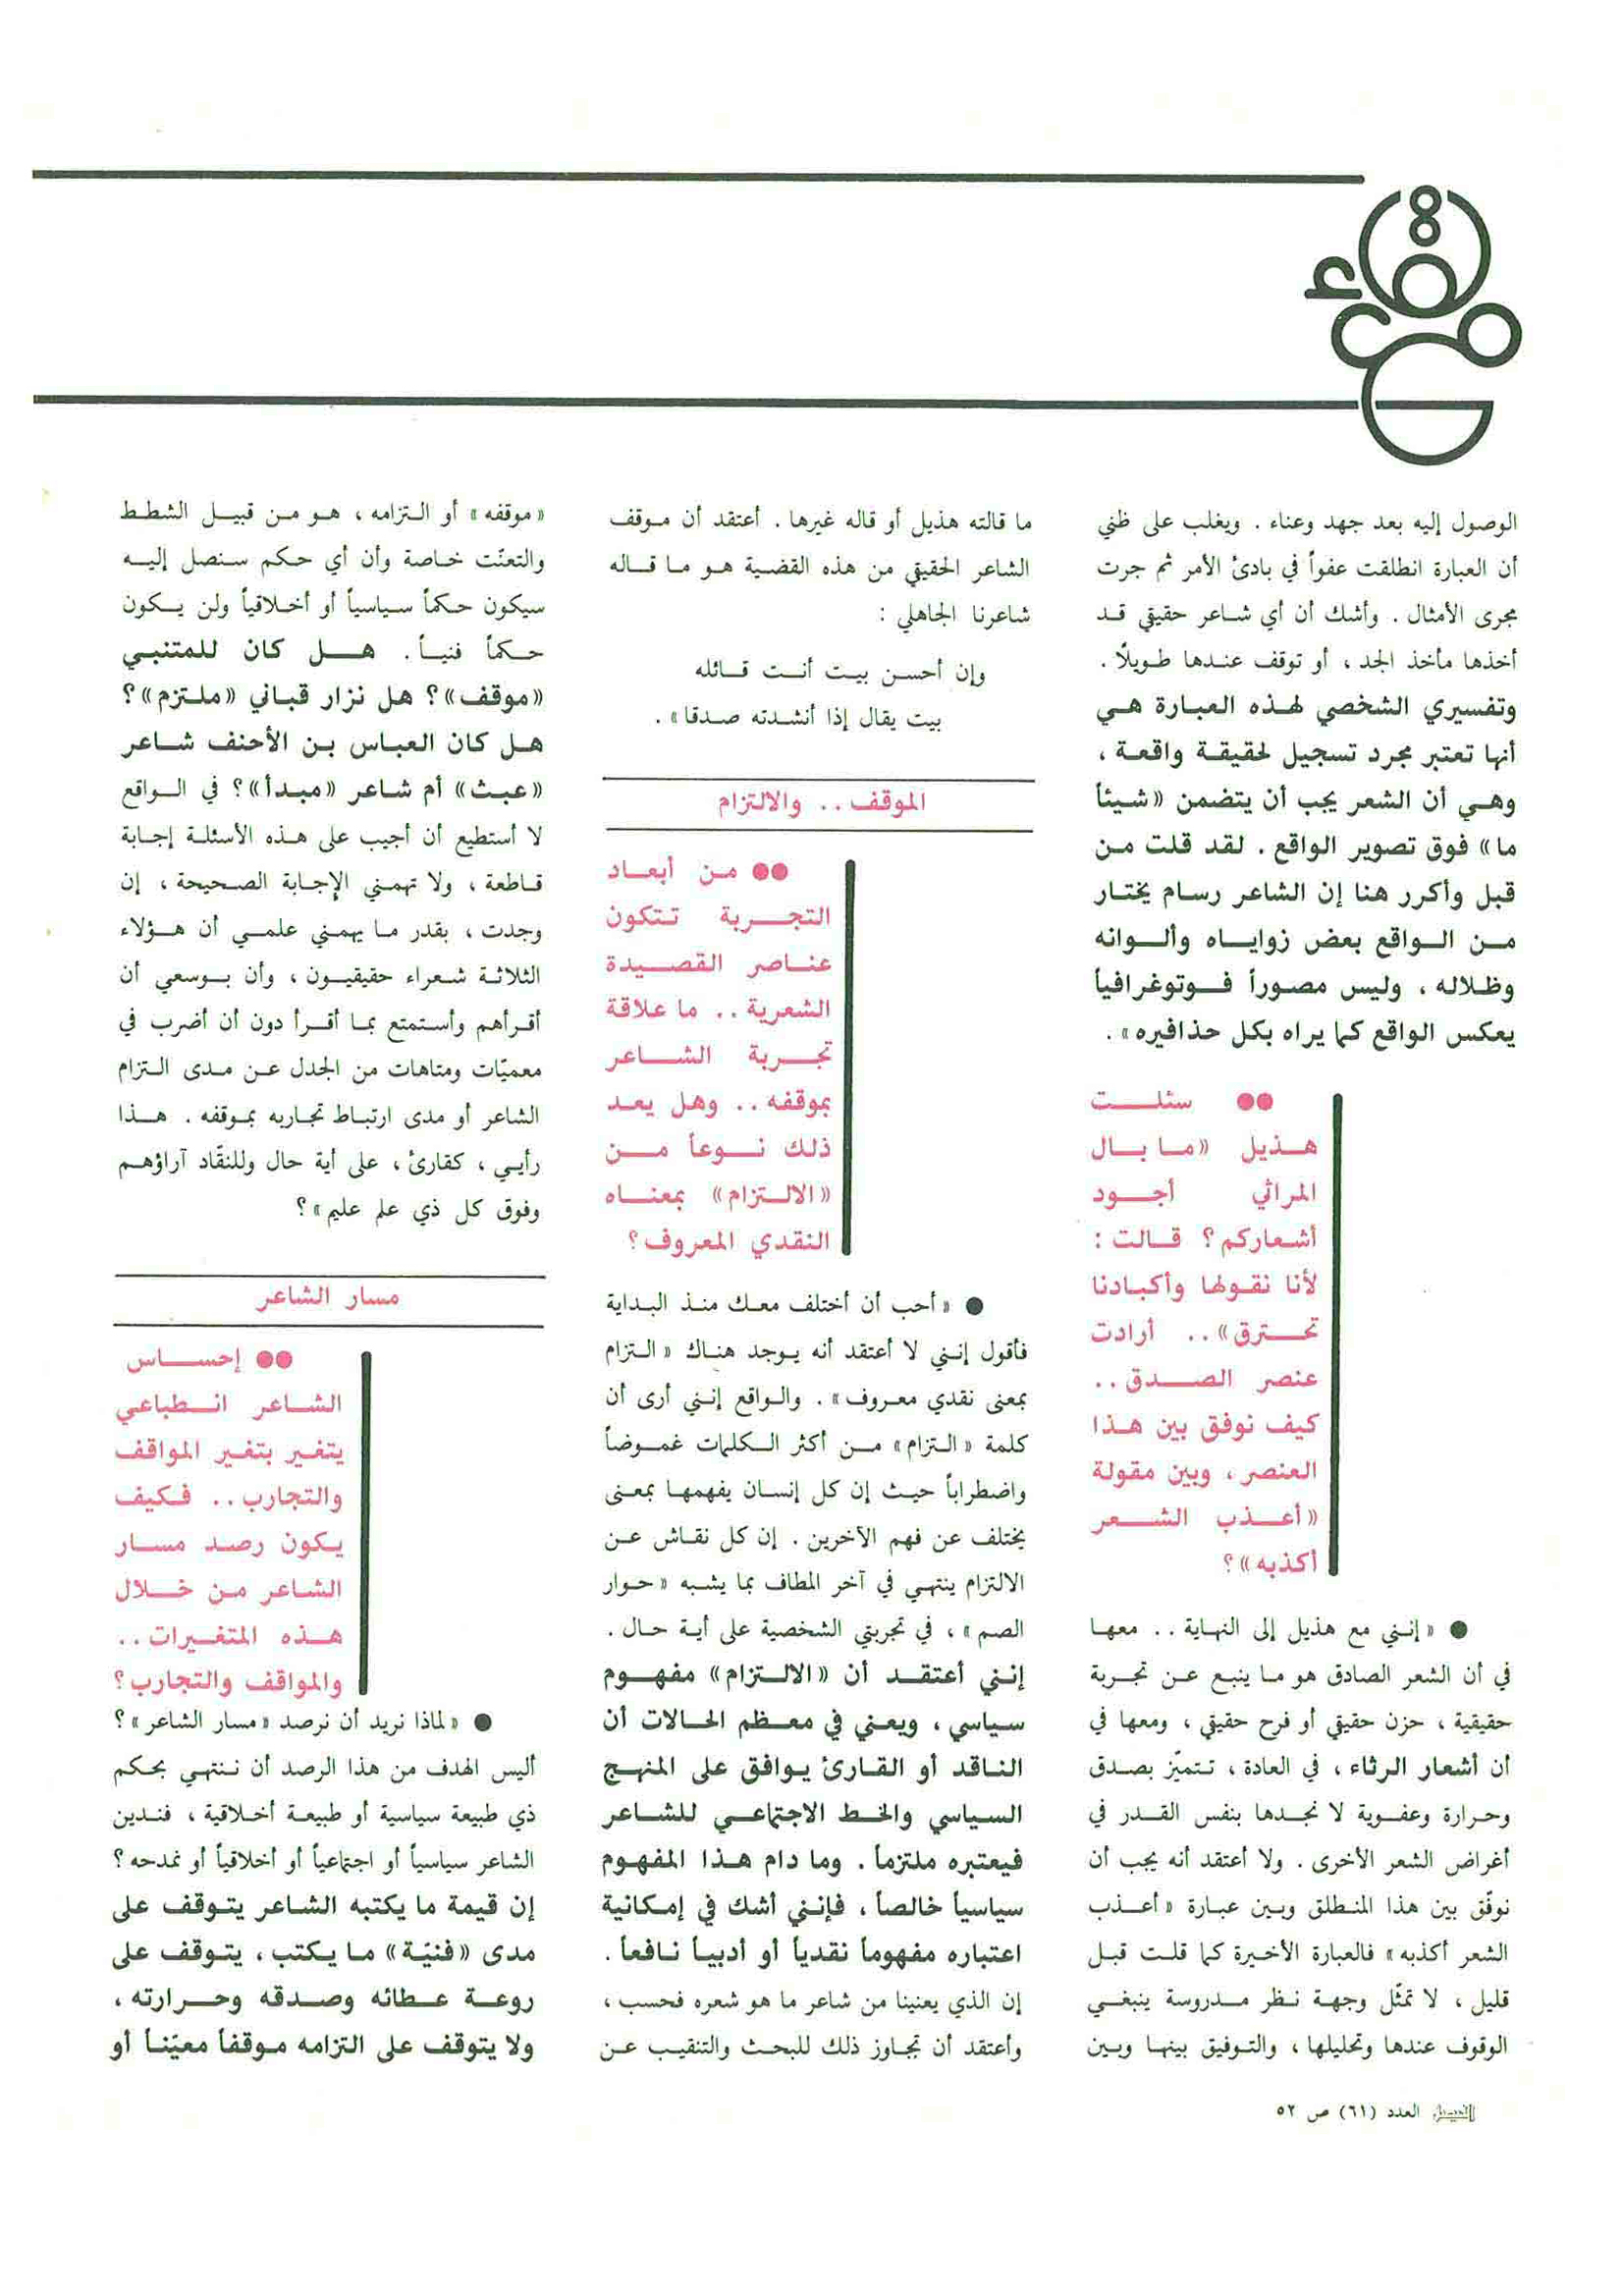 الوصول إليه بعد جهد وعناء . ويغلب على ظني
أن العبارة انطلقت عفواً في بادئ الأمر ثم جرت
مجرى الأمثال . وأشك أن أي شاعر حقيقي قد
أخذها مأخذ الجد ، أو توقف عندها طويلاً .
وتفسيري الشخصي لهذه العبارة هي
أنها تعتبر مجرد تسجيل لحقيقة واقعة ،
وهي أن الشعر يجب أن يتضمن «شيئاً
ما» فوق تصوير الواقع . لقد قلت من
قبل وأكرر هنا إن الشاعر رسام يختار
من الواقع بعض زواياه وألوانه
وظلاله ، وليس مصوراً فوتوغرافياً
يعكس الواقع كما يراه بكل حذافيره» .
●● سئلت
هذيل «ما بال
المراثي أجود
أشعاركم؟ قالت :
لأنا نقولها وأكبادنا
تحترق» .. أرادت
عنصر الصدق ..
كيف نوفق بين هذا
العنصر ، وبين مقولة
«أعذب الشعر
أكذبه»؟
● «إنني مع هذيل إلى النهاية .. معها
في أن الشعر الصادق هو ما ينبع عن تجربة
حقيقية ، حزن حقيقي أو فرح حقيقي ، ومعها في
أن أشعار الرثاء ، في العادة ، تتميّز بصدق
وحرارة وعفوية لا نجدها بنفس القدر في
أغراض الشعر الأخرى . ولا أعتقد أنه يجب أن
نوفّق بين هذا المنطلق وبين عبارة «أعذب
الشعر أكذبه» فالعبارة الأخيرة كما قلت قبل
قليل ، لا تمثّل وجهة نظر مدروسة ينبغي
الوقوف عندها وتحليلها ، والتوفيق بينها وبين
ما قالته هذيل أو قاله غيرها . أعتقد أن موقف
الشاعر الحقيقي من هذه القضية هو ما قاله
شاعرنا الجاهلي :
وإن أحسن بيت أنت قائله
بيت يقال إذا أنشدته صدقا» .
الموقف .. والالتزام
●● من أبعاد
التجربة تتكون
عناصر القصيدة
الشعرية .. ما علاقة
تجربة الشاعر
بموقفه .. وهل يعد
ذلك نوعاً من
«الالتزام» بمعناه
النقدي المعروف؟
● «أحب أن أختلف معك منذ البداية
فأقول إنني لا أعتقد أنه يوجد هناك «التزام
بمعنى نقدي معروف» . والواقع إنني أرى أن
كلمة «التزام» من أكثر الكلمات غموضاً
واضطراباً حيث إن كل إنسان يفهمها بمعنى
يختلف عن فهم الآخرين . إن كل نقاش عن
الالتزام ينتهي في آخر المطاف بما يشبه «حوار
الصم» ، في تجربتي الشخصية على أية حال .
إنني أعتقد أن «الالتزام» مفهوم
سياسي ، ويعني في معظم الحالات أن
الناقد أو القارئ يوافق على المنهج
السياسي والخط الاجتماعي للشاعر
فيعتبره ملتزماً . وما دام هذا المفهوم
سياسياً خالصاً ، فإنني أشك في إمكانية
اعتباره مفهوماً نقدياً أو أدبياً نافعاً .
إن الذي يعنينا من شاعر ما هو شعره فحسب ،
وأعتقد أن تجاوز ذلك للبحث والتنقيب عن
«موقفه» أو التزامه ، هو من قبيل الشطط
والتعنّت خاصة وأن أي حكم سنصل إليه
سيكون حكماً سياسياً أو أخلاقياً ولن يكون
حكماً فنياً . هل كان للمتنبي
«موقف»؟ هل نزار قباني «ملتزم»؟
هل كان العباس بن الأحنف شاعر
«عبث» أم شاعر «مبدأ»؟ في الواقع
لا أستطيع أن أجيب على هذه الأسئلة إجابة
قاطعة ، ولا تهمني الإجابة الصحيحة ، إن
وجدت ، بقدر ما يهمني علمي أن هؤلاء
الثلاثة شعراء حقيقيون ، وأن بوسعي أن
أقرأهم وأستمتع بما أقرأ دون أن أضرب في
معميّات ومتاهات من الجدل عن مدى التزام
الشاعر أو مدى ارتباط تجاربه بموقفه . هذا
رأيي ، كقارئ ، على أية حال وللنقّاد آراؤهم
وفوق كل ذي علم عليم»؟
مسار الشاعر
●● إحساس
الشاعر انطباعي
يتغير بتغير المواقف
والتجارب .. فكيف
يكون رصد مسار
الشاعر من خلال
هذه المتغيرات ..
والمواقف والتجارب؟
● «لماذا نريد أن نرصد «مسار الشاعر»؟
أليس الهدف من هذا الرصد أن ننتهي بحكم
ذي طبيعة سياسية أو طبيعة أخلاقية ، فندين
الشاعر سياسياً أو اجتماعياً أو أخلاقياً أو نمدحه؟
إن قيمة ما يكتبه الشاعر يتوقف على
مدى «فنيّة» ما يكتب ، يتوقف على
روعة عطائه وصدقه وحرارته ،
ولا يتوقف على التزامه موقفاً معيّناً أو
الفيصل العدد (٦١) ص ٥٢